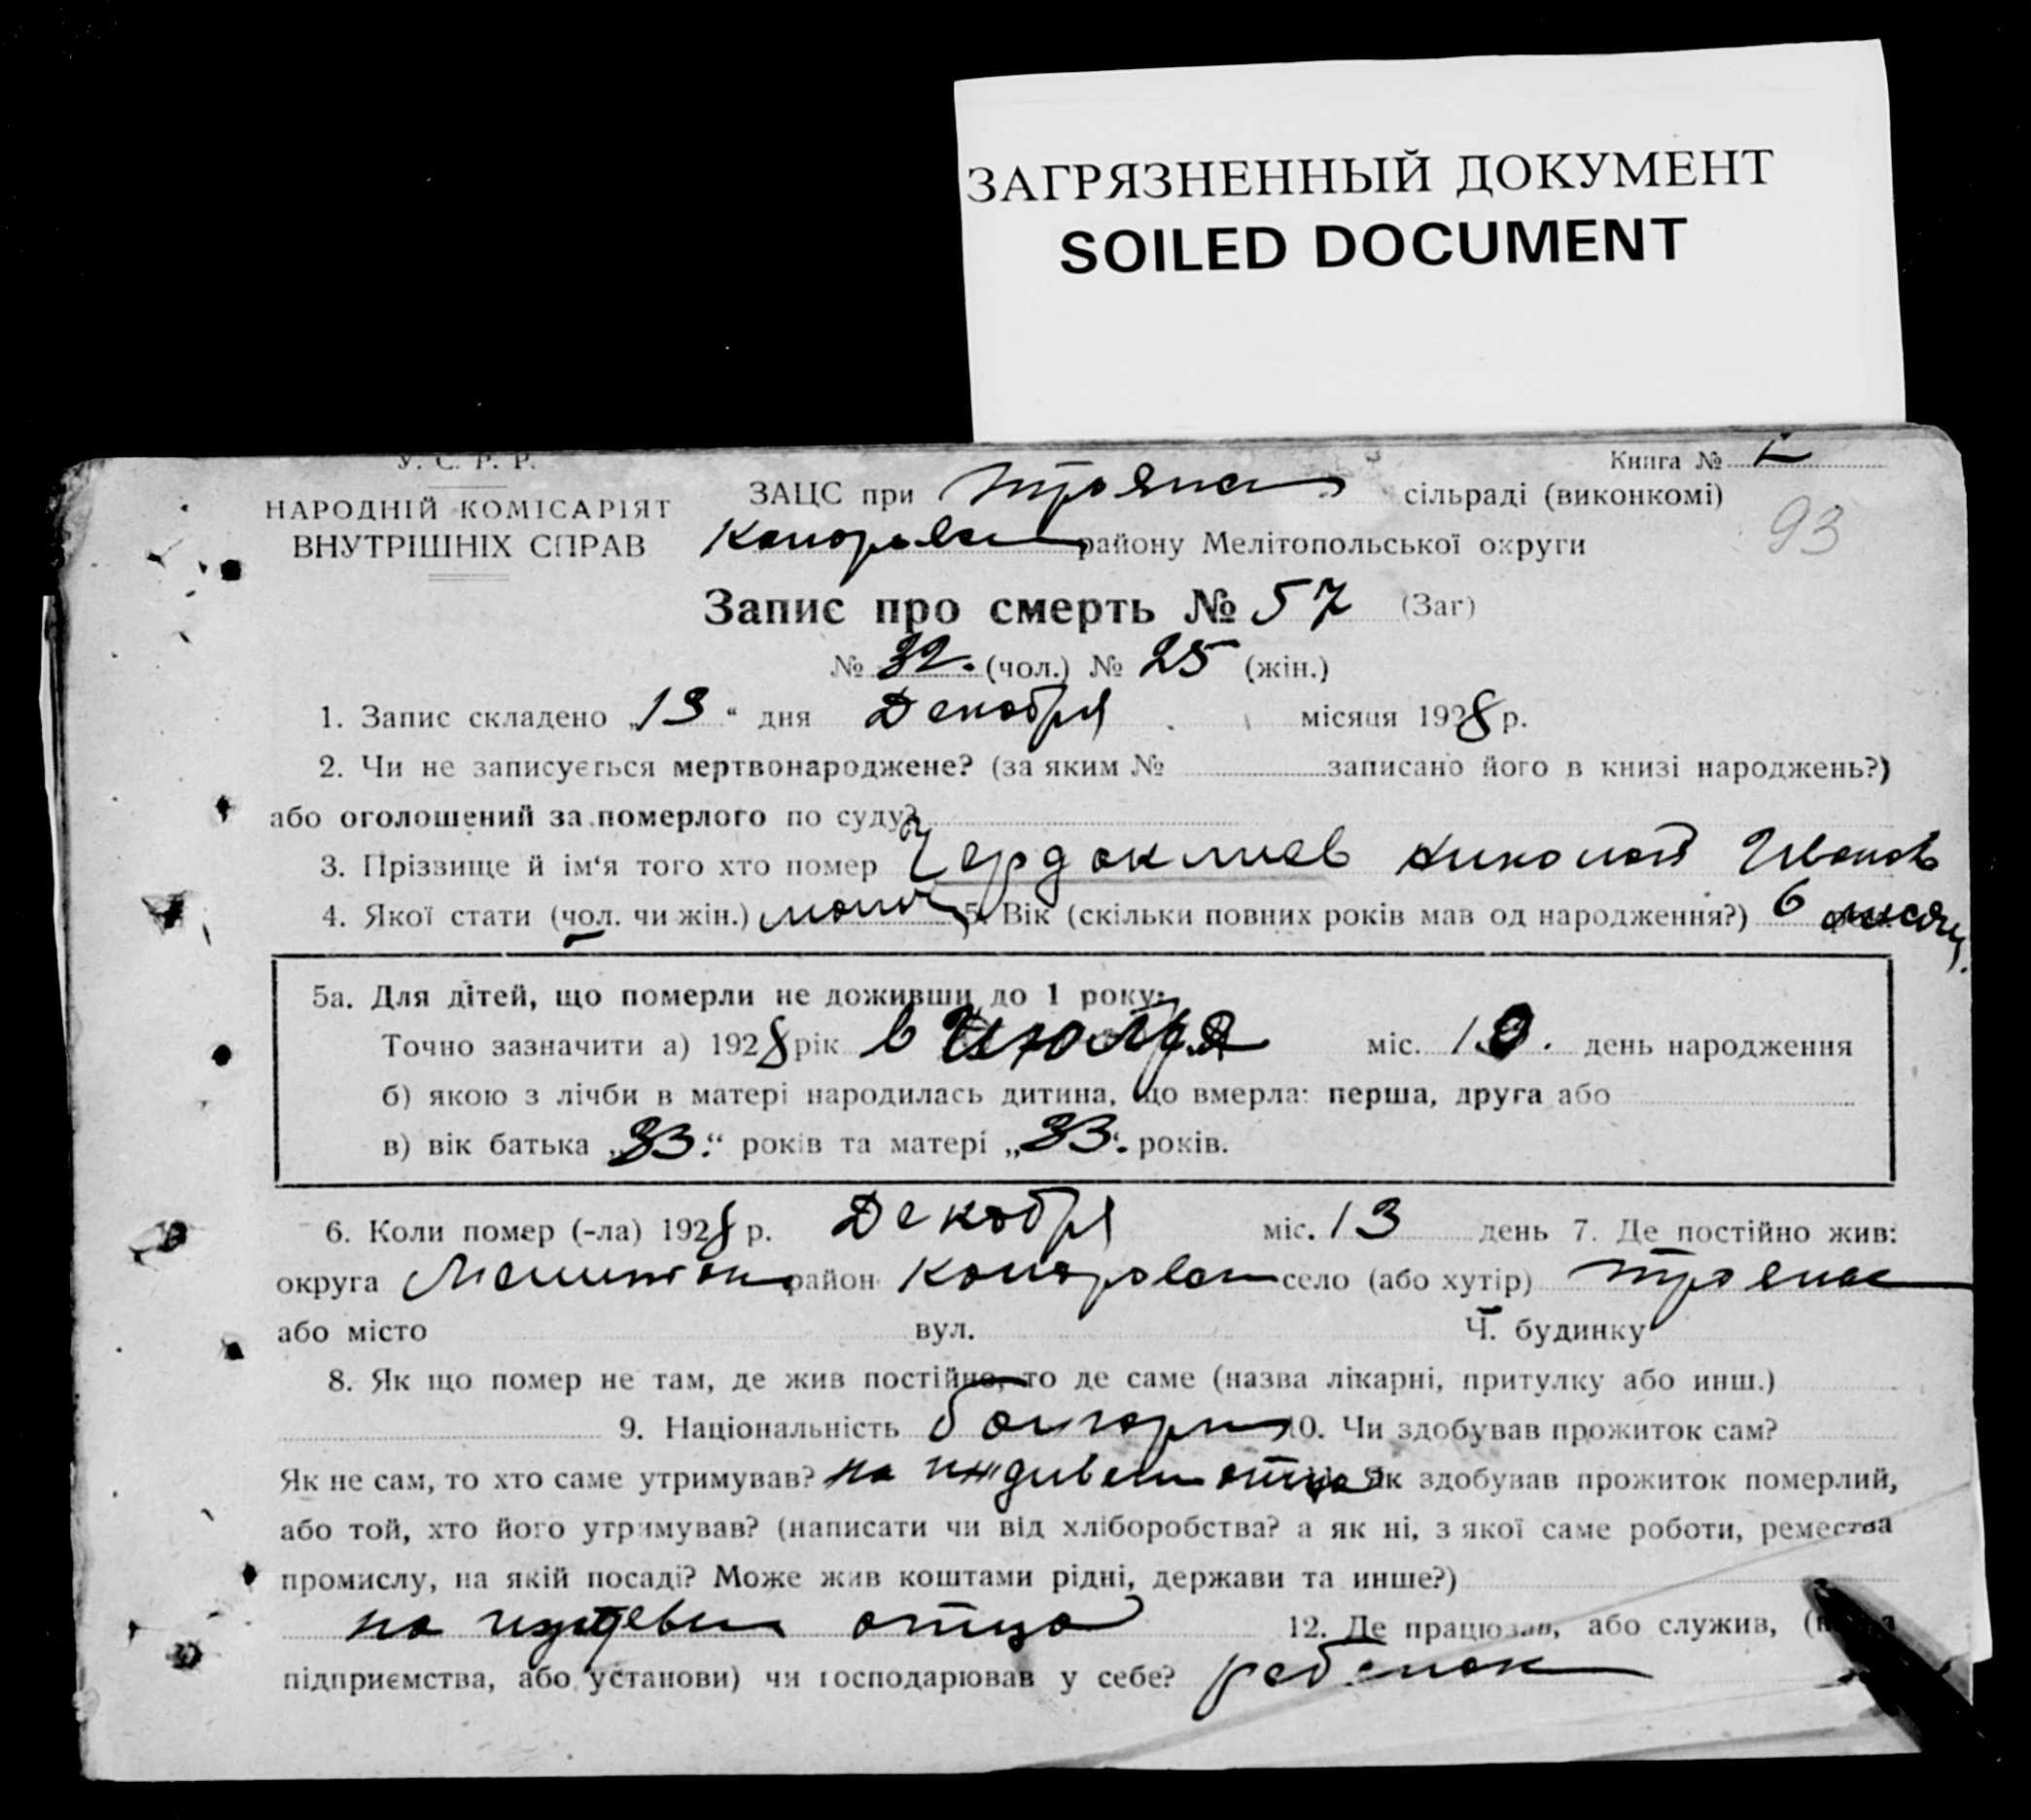 ЗАГРЯЗНЕННЫЙ ДОКУМЕНТ
SOILED DOCUMENT
У. С. Р. Р.
Книга №
НАРОДНІЙ КОМІСАРІЯТ
ВНУТРІШНІХ СПРАВ
ЗАЦС при Троянс сільраді (виконкомі)
району Мелітопольської округи
93
Запис про смерть № 57 (Заг)
№ 32. (чол.) № 25 (жін.)
1. Запис складено „13“ дня Декобря місяця 1928 р.
2. Чи не записується мертвонароджене? (за яким № записано його в книзі народжень?)
або оголошений за померлого по суду?
3. Прізвище й ім‘я того хто помер Чердаклиев Николай Иванов
4. Якої стати (чол. чи жін.) 5. Вік (скільки повних років мав од народження?) 6 месяц.
5а. Для дітей, що померли не доживши до 1 року:
Точно зазначити а) 1928 рік міс. день народження
б) якою з лічби в матері народилась дитина, що вмерла: перша, друга або
в) вік батька „33.“ років та матері „33“. років.
6. Коли помер (-ла) 1928 р. Декобря міс. 13 день 7. Де постійно жив:
округа район село (або хутір) Троянс
або місто вул. Ч. будинку
8. Як що помер не там, де жив постійно, то де саме (назва лікарні, притулку або инш.)
9. Національність болгарин 10. Чи здобував прожиток сам?
Як не сам, то хто саме утримував? на иждивен отца Як здобував прожиток померлий,
або той, хто його утримував? (написати чи від хліборобства? а як ні, з якої саме роботи, ремества
промислу, на якій посаді? Може жив коштами рідні, держави та инше?)
на отца 12. Де працював, або служив,
підприємства, або установи) чи господарював у себе? ребенок